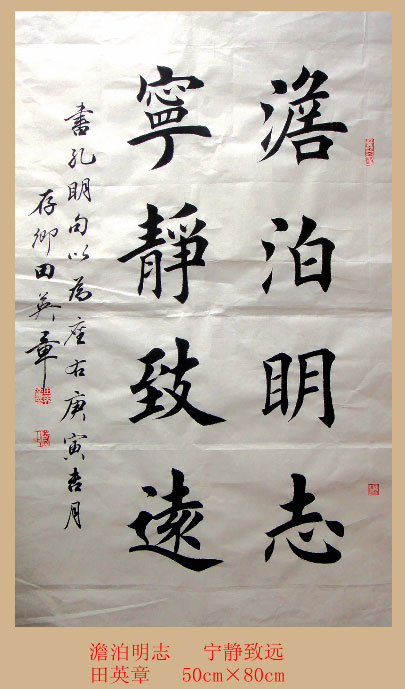 澹泊明志
寧靜致遠
書孔明句以為座右庚寅吉月
存卿田英章
澹泊明志 宁静致远
田英章 50cm×80cm